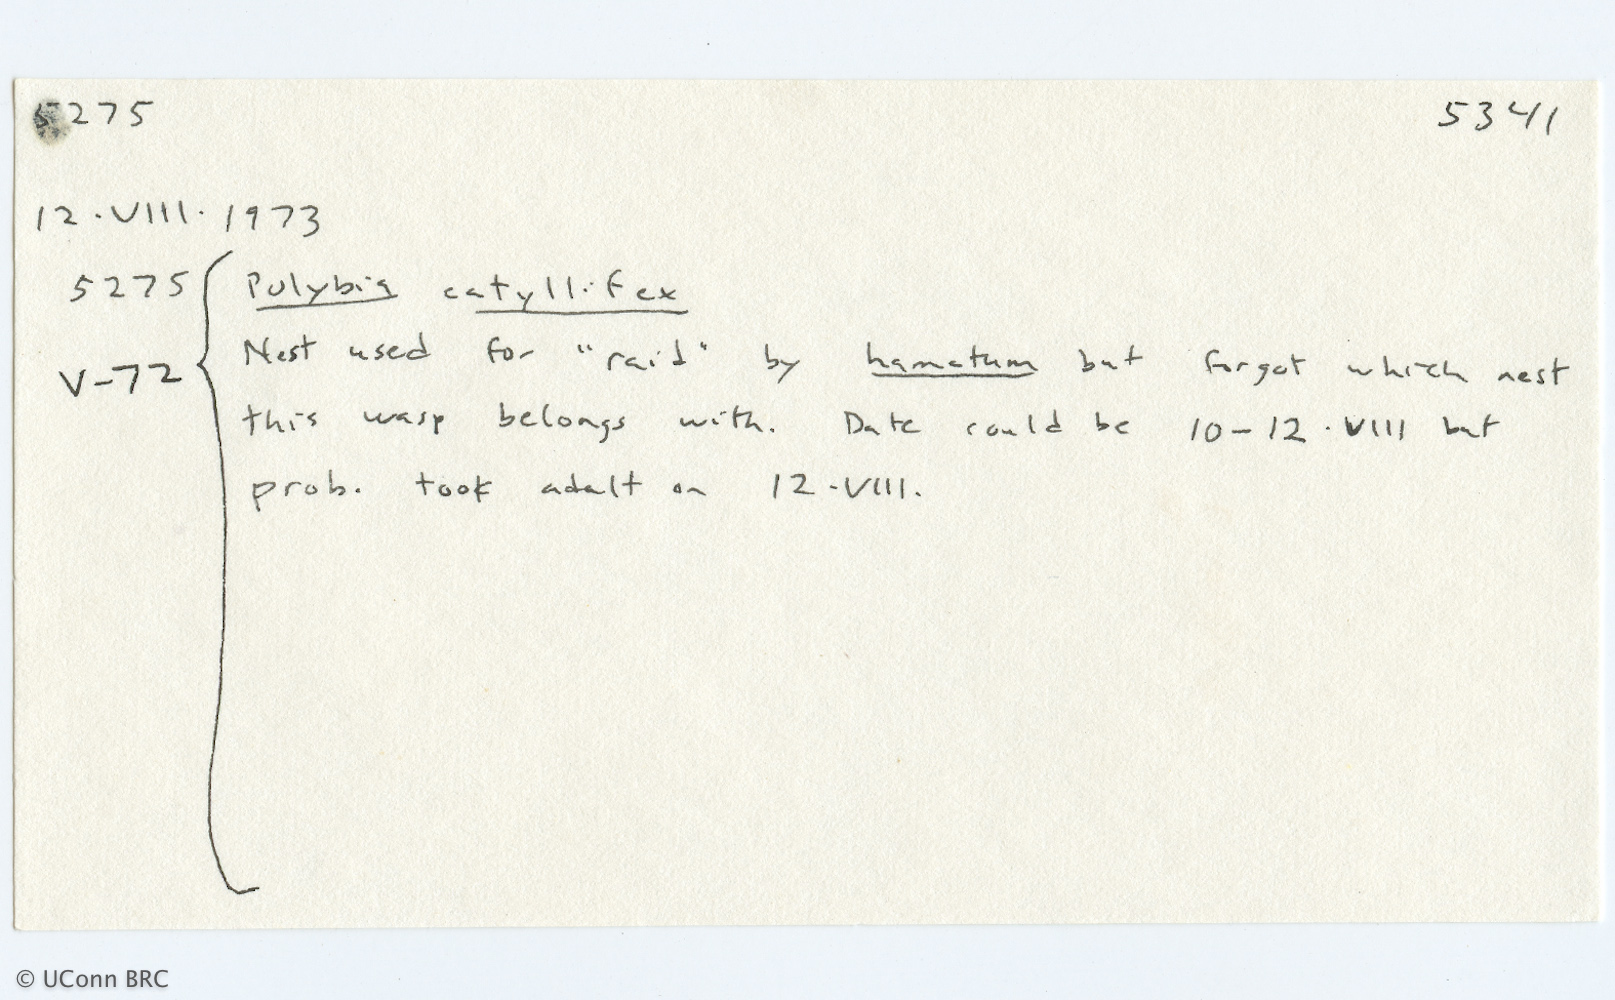 5275 5341
12.VIII.1973
5275 Polybia catyllifex
V-72 Nest used for "raid" by hamatum but forgot which nest
this wasp belongs with. Date could be 10-12.VIII but
prob. took adult on 12.VIII.
© UConn BRC